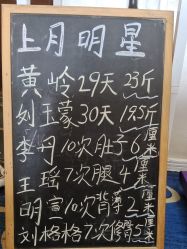 上月明星
黄岭29天23斤
刘玉蒙30天19.5斤
李丹10次肚子6厘米
王瑶7次腿4厘米
明富10次背薄2厘米
刘格格7次